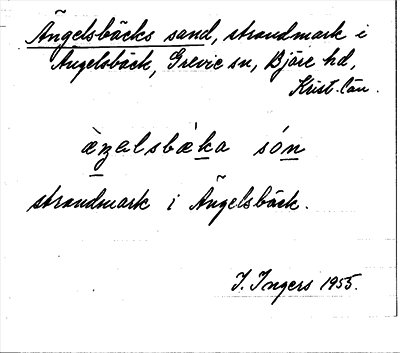 Ängelsbäcks sand, strandmark i
Ängelsbäck, Grevie sn, Bjäre hd,
Krist. län.
æ̀ŋelsbæ̀ka són
strandmark i Ängelsbäck.
I. Ingers 1955.